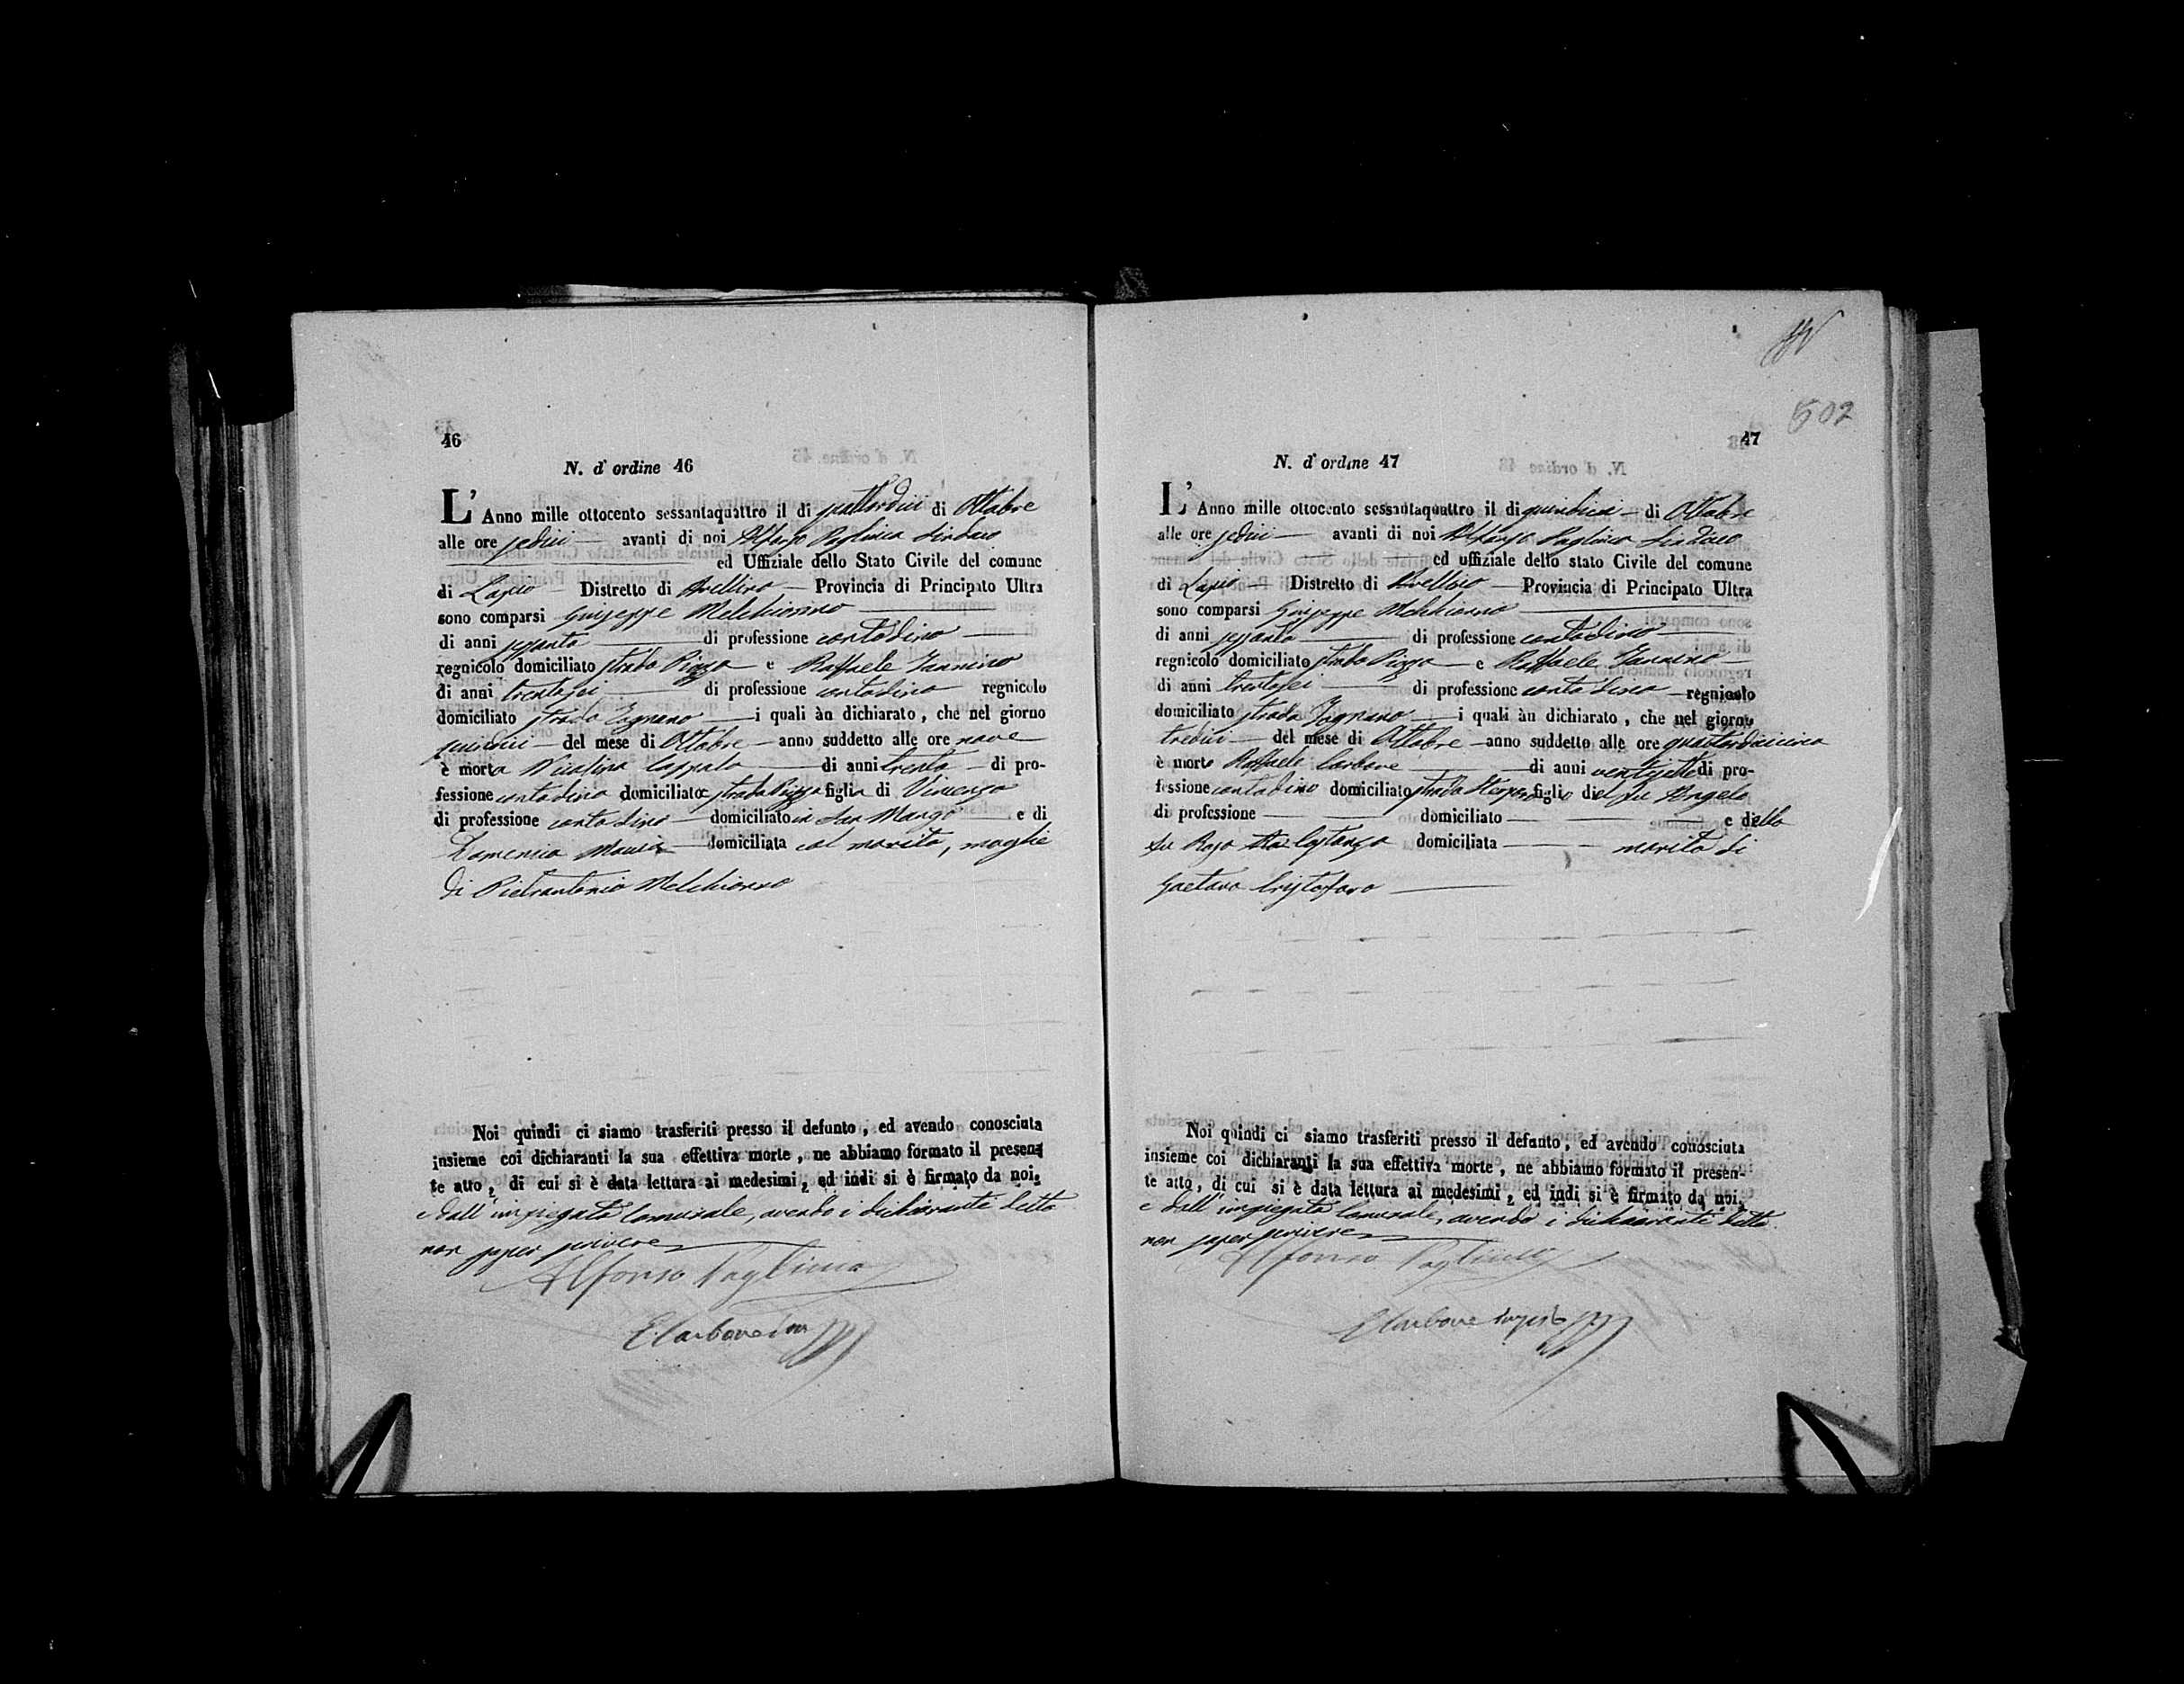 46
N. d'ordine 46
L'Anno mille ottocento sessantaquattro il di quattordici di Ottobre
alle ore sedici avanti di noi Alfonso Paglinca Sindaco
ed Uffiziale dello Stato Civile del comune
di Lapio Distretto di Avellino Provincia di Principato Ultra
sono comparsi Giuseppe Melchiorino
di anni sessanta di professione contadino
regnicolo domiciliato strada Pizzo e Raffaele Iannino
di anni trentasei di professione contadino regnicolo
domiciliato strada i quali àn dichiarato, che nel giorno
del mese di Ottobre anno suddetto alle ore nove
è morta Nicolina Coppola di anni trenta di pro-
fessione contadina domiciliata strada Pizzo figlia di Vincenzo
di professione contadino domiciliato in San Mango e di
Domenica domiciliata col marito, moglie
di Pietrantonio Melchionno
Noi quindi ci siamo trasferiti presso il defunto, ed avendo conosciuta
insieme coi dichiaranti la sua effettiva morte, ne abbiamo formato il presen-
te atto, di cui si è data lettura ai medesimi, ed indi si è firmato da noi,
e dall'impiegato Comunale, avendo i dichiaranti detto
non saper scrivere
Alfonso Paglinca
E Carbone
502
47
N. d'ordine 47
L'Anno mille ottocento sessantaquattro il di quindici di Ottobre
alle ore sedici avanti di noi Alfonso Paglinca Sindaco
ed uffiziale dello stato Civile del comune
di Lapio Distretto di Avellino Provincia di Principato Ultra
sono comparsi Giuseppe Melchionno
di anni sessanta di professione contadino
regnicolo domiciliato strada Pizzo e Raffaele Iannino
di anni trentasei di professione contadino regnicolo
domiciliato strada i quali àn dichiarato, che nel giorno
tredici del mese di Ottobre anno suddetto alle ore quattordici circa
è morto Raffaele Carbone di anni ventisette di pro-
fessione contadino domiciliato strada figlio del fu Angelo
di professione domiciliato e della
fu Rosa Costanzo domiciliata marito di
Gaetana Cristofaro
Noi quindi ci siamo trasferiti presso il defunto, ed avendo conosciuta
insieme coi dichiaranti la sua effettiva morte, ne abbiamo formato il presen-
te atto, di cui si è data lettura ai medesimi, ed indi si è firmato da noi,
e dall'impiegato Comunale, avendo i dichiaranti detto
non saper scrivere
Alfonso Paglinca
E Carbone